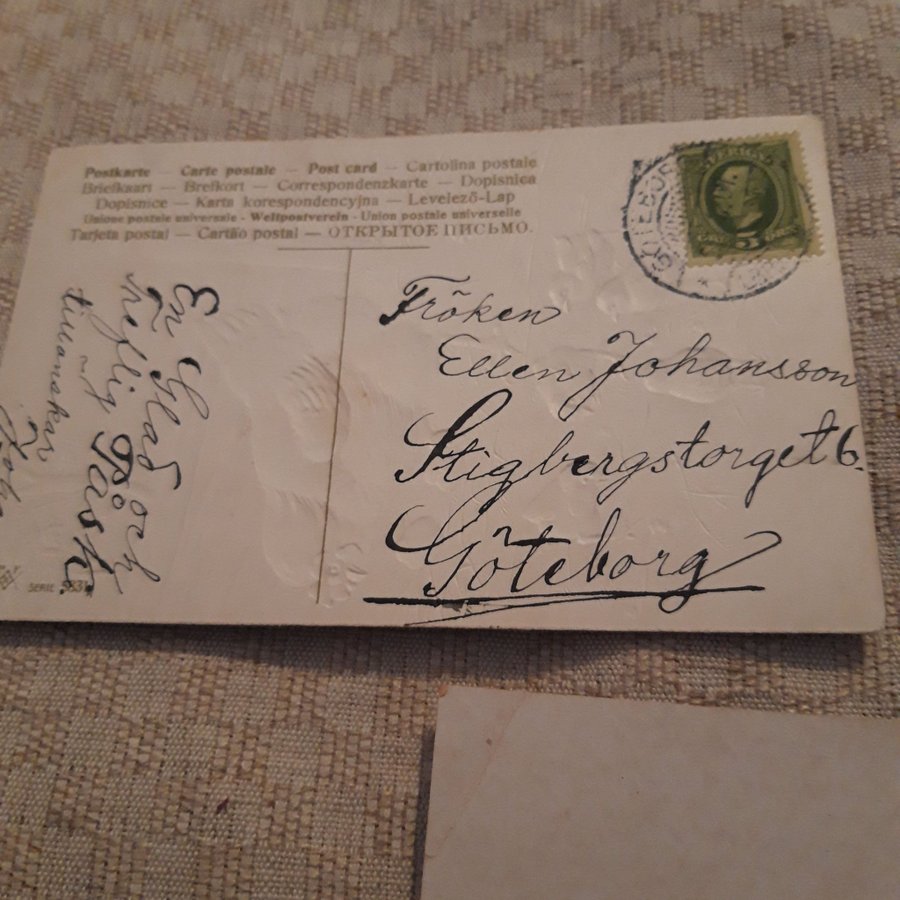 Postkarte — Carte postale — Post card — Cartolina postale
Briefkaart — Brefkort — Correspondenzkarte — Dopisnica
Dopisnice — Karta korespondencyjna — Levelező-Lap
Unione postale universale - Weltpostverein - Union postale universelle
Tarjeta postal — Cartão postal — ОТКРЫТОЕ ПИСЬМО.
GÖTEBORG
SVERIGE
5
Fröken
Ellen Johansson
Stigbergstorget 6.
Göteborg
En Glad och
treflig Påsk
tillönskar
SERIE